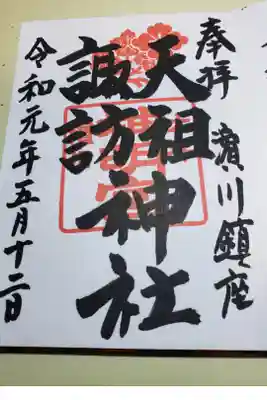 奉拝 濱川鎮座
天祖神社
諏訪
令和元年五月十二日